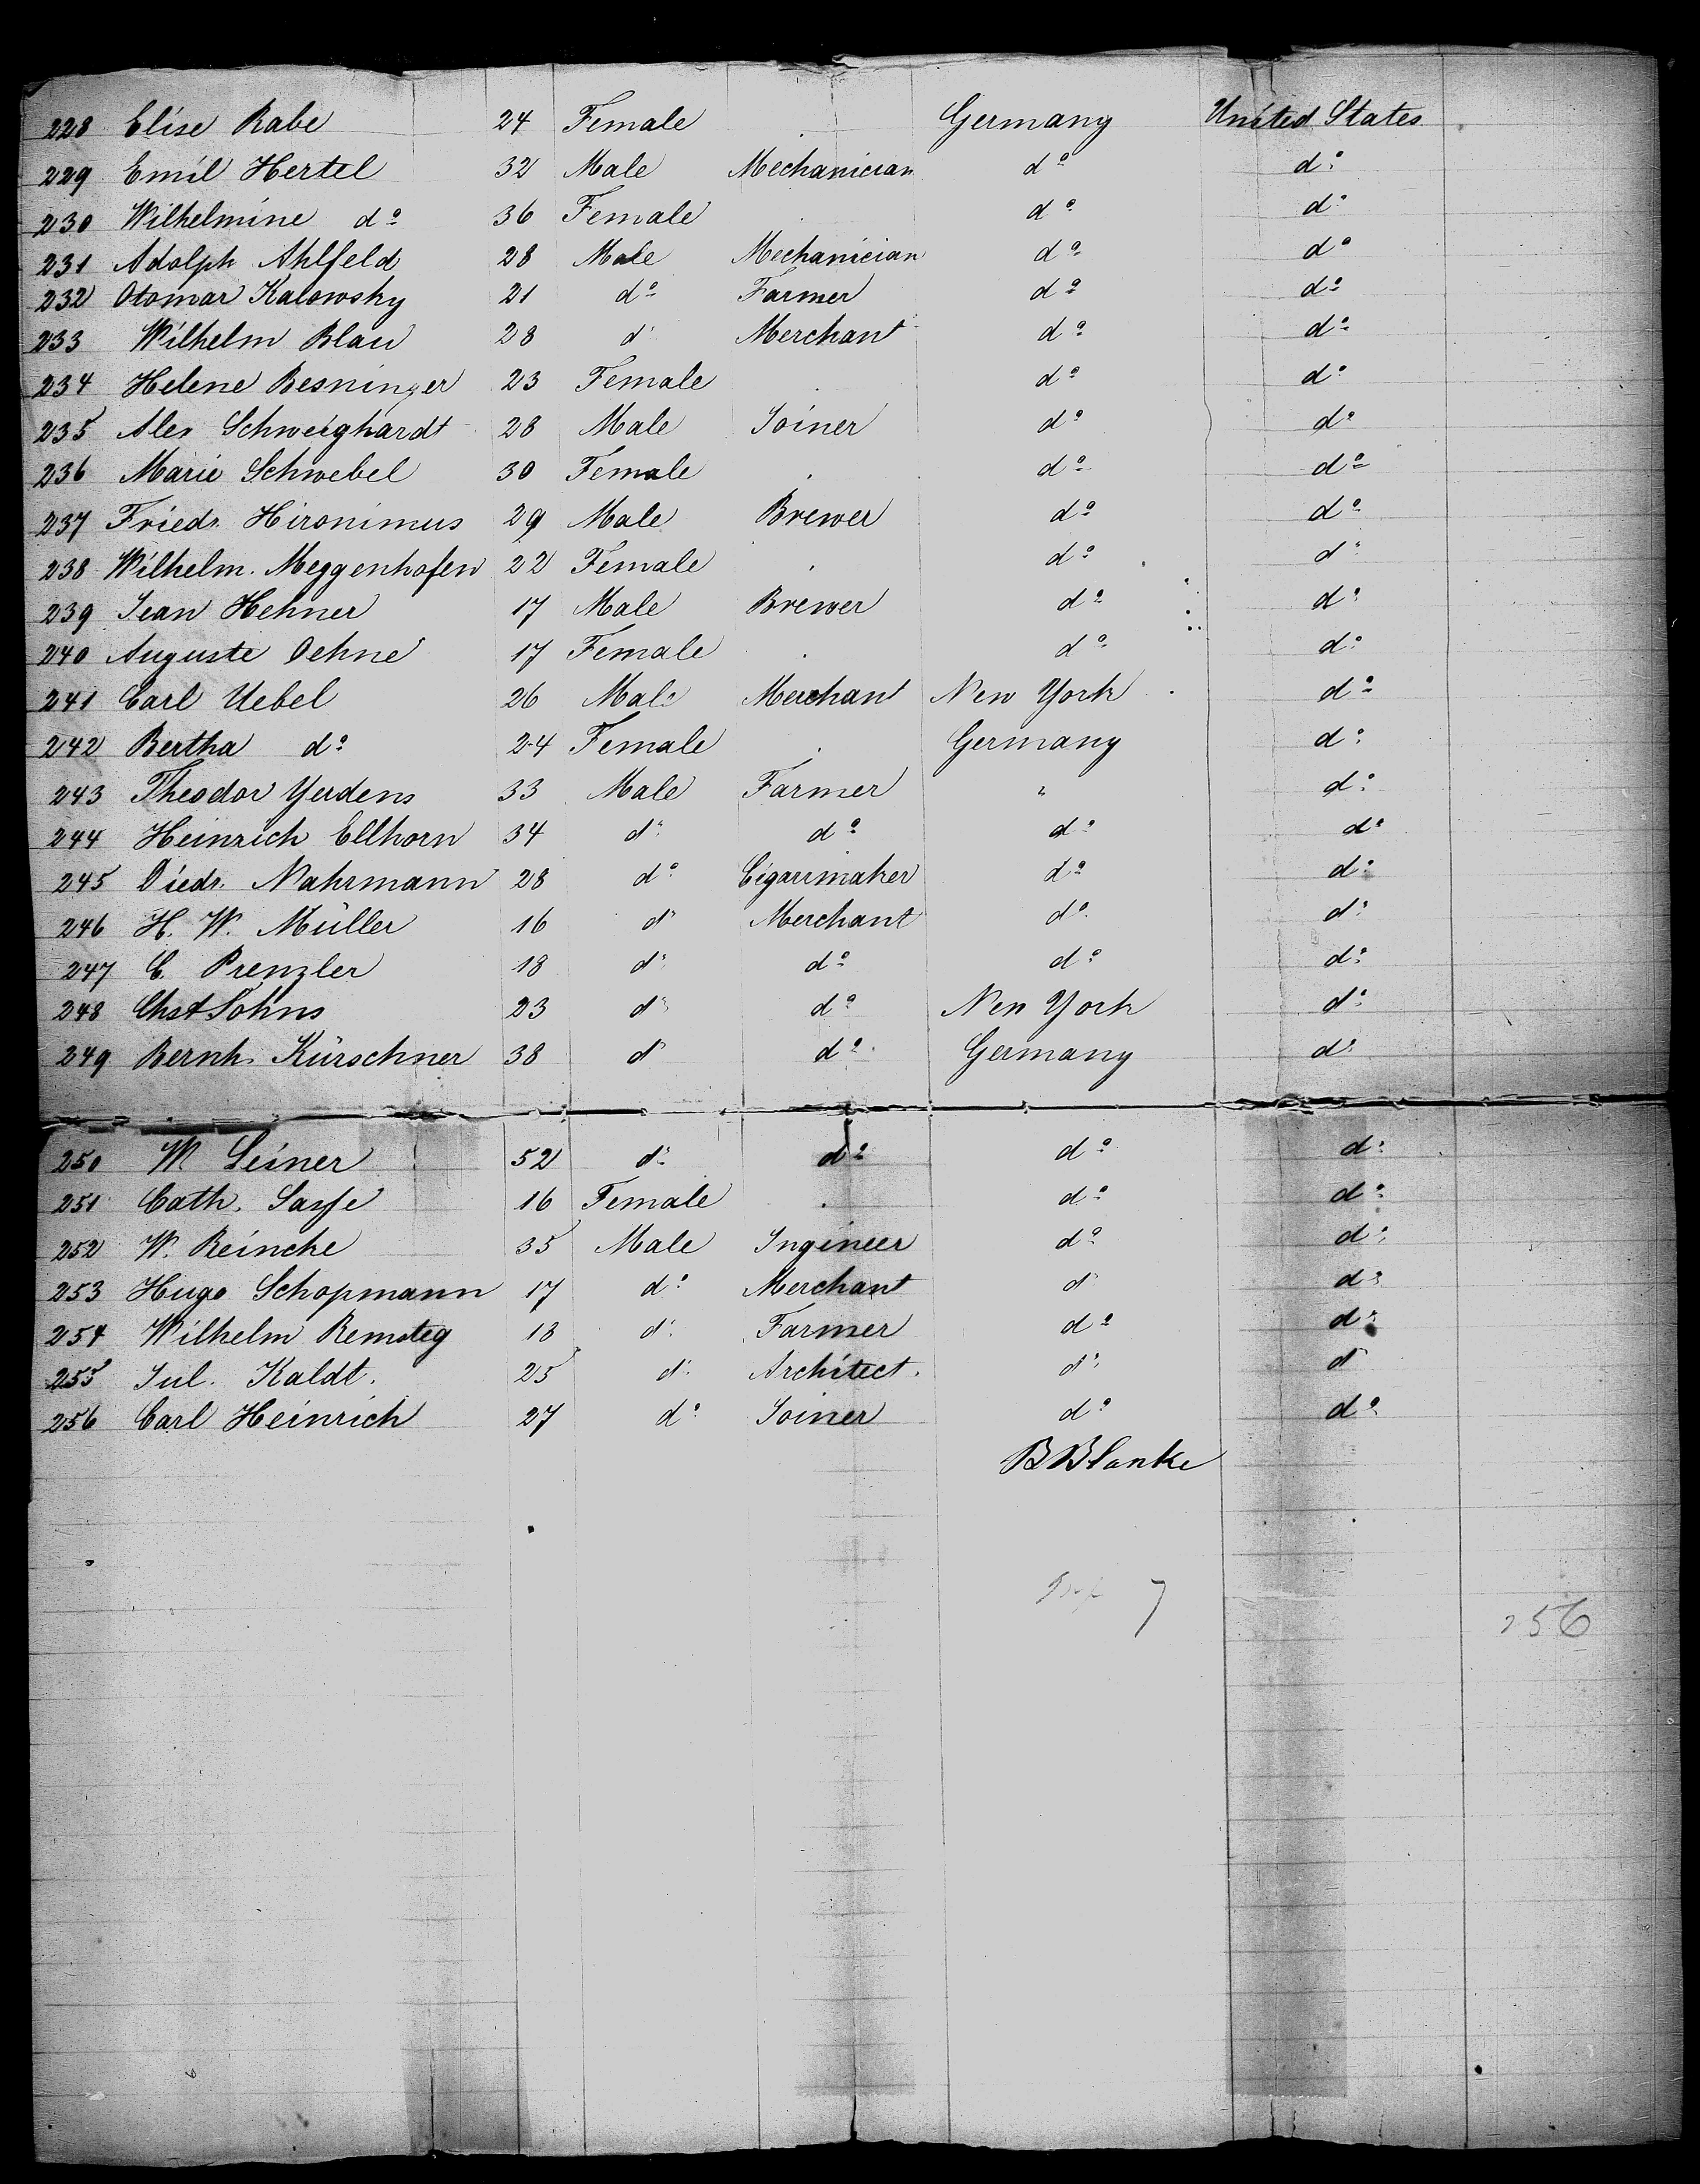 228 Elise Rabe 24 Female Germany United States
229 Emil Hertel 32 Male Mechanician do do
230 Wilhelmine do 36 Female do do
231 Adolph Ahlfeld 28 Male Mechanician do do
232 Otomar Kalowsky 21 do Farmer do do
233 Wilhelm Blau 28 do Merchant do do
234 Helene Besninger 23 Female do do
235 Alex Schweighardt 28 Male Joiner do do
236 Marie Schwebel 30 Female do do
237 Friedr. Hironimus 29 Male Brewer do do
238 Wilhelm. Meggenhofen 22 Female do do
239 Jean Hehner 17 Male Brewer do do
240 Auguste Oehne 17 Female do do
241 Carl Uebel 26 Male Merchant New York do
242 Bertha do 24 Female Germany do
243 Theodor Yerdens 33 Male Farmer " do
244 Heinrich Ellhorn 34 do do do do
245 Diedr. Nahrmann 28 do Cigarrmaker do do
246 H. W. Müller 16 do Merchant do do
247 C. Prenzler 18 do do do do
248 Chst Söhns 23 do do New York do
249 Bernh. Kürschner 38 do do Germany do
250 M Leiner 52 do do do do
251 Cath. Sasse 16 Female do do
252 W. Reincke 35 Male Ingineer do do
253 Hugo Schopmann 17 do Merchant do do
254 Wilhelm Remsteg 18 do Farmer do do
255 Jul. Kaldt. 25 do Architect. do do
256 Carl Heinrich 27 do Joiner do do
B Blanke
7
256